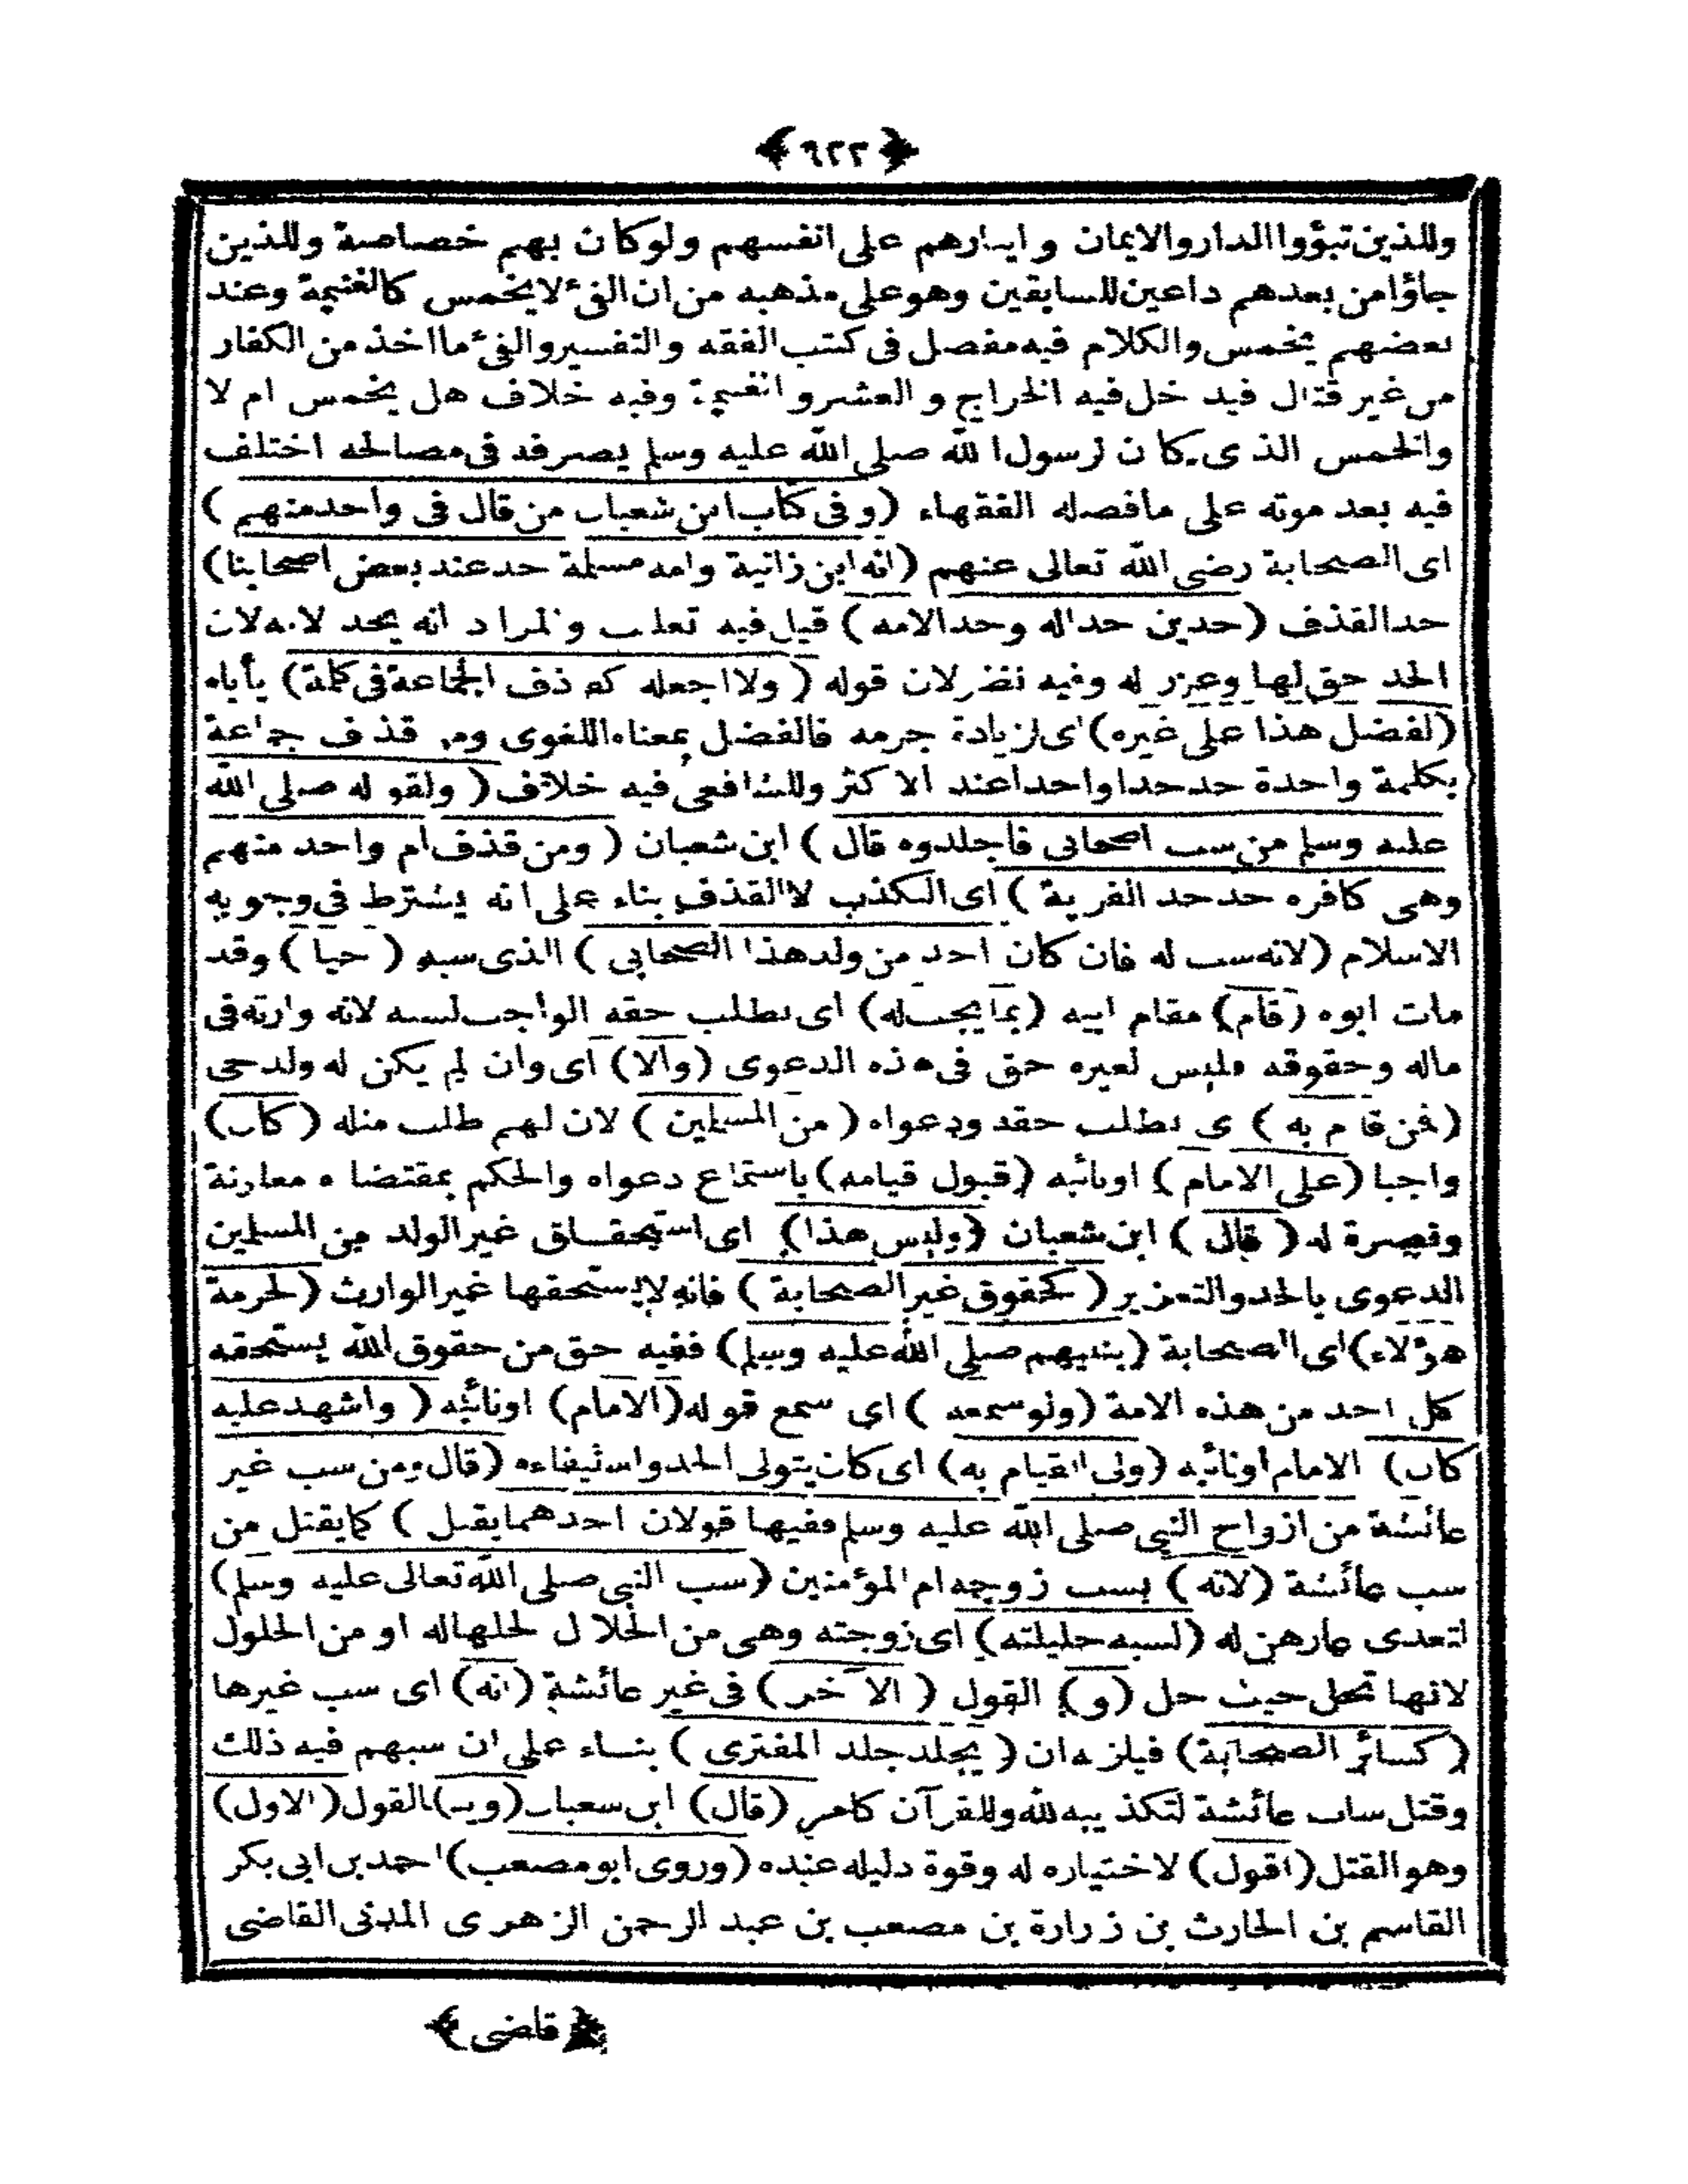 ﴿ ٦٢٢ ﴾
وللذين تبوؤا الدار والايمان وايثارهم على انفسهم ولو كان بهم خصاصة وللذين
جاؤا من بعدهم داعين للسابقين وهو على مذهبه من ان الفئ لا يخمس كالغنيمة وعند
بعضهم يخمس والكلام فيه مفصل فى كتب الفقه والتفسير والفئ ما اخذ من الكفار
من غير قتال فيدخل فيه الخراج والعشر والغنيمة وفيه خلاف هل يخمس ام لا
والخمس الذى كان لرسول الله صلى الله عليه وسلم يصرفه فى مصالحه اختلف
فيه بعد موته على ما فصله الفقهاء (وفى كتاب ابن شعبان من قال فى واحد منهم)
اى الصحابة رضى الله تعالى عنهم (انه ابن زانية وامه مسلمة حد عند بعض اصحابنا)
حد القذف (حدين حدا له وحدا لامه) قيل فيه تغليب والمراد انه يحد لامه لان
الحد حق لها وعزر له وفيه نظر لان قوله (ولا اجعله كقذف الجماعة فى كلمة) يأباه
(لفضل هذا على غيره) اى لزيادة جرمه فالفضل بمعناه اللغوى ومن قذف جماعة
بكلمة واحدة حد حدا واحدا عند الاكثر وللشافعى فيه خلاف (ولقوله صلى الله
عليه وسلم من سب اصحابى فاجلدوه قال) ابن شعبان (ومن قذف ام واحد منهم
وهى كافره حد حد الفرية) اى الكذب لا القذف بناء على انه يشترط فى وجوبه
الاسلام (لانه سب له فان كان احد من ولد هذا الصحابى) الذى سبه (حيا) وقد
مات ابوه (قام) مقام ابيه (بما يجب له) اى يطلب حقه الواجب لسبه لانه وارثه فى
ماله وحقوقه فليس لغيره حق فى هذه الدعوى (والا) اى وان لم يكن له ولد حى
(فمن قام به) اى يطلب حقه ودعواه (من المسلمين) لان لهم طلب مثله (كان)
واجبا (على الامام) او نائبه (قبول قيامه) باستماع دعواه والحكم بمقتضاه معاونة
ونصرة له (قال) ابن شعبان (وليس هذا) اى استحقاق غير الولد من المسلمين
الدعوى بالحد والتعزير (كحقوق غير الصحابة) فانه لا يستحقها غير الوارث (لحرمة
هؤلاء) اى الصحابة (بنبيهم صلى الله عليه وسلم) ففيه حق من حقوق الله يستحقه
كل احد من هذه الامة (ولو سمعه) اى سمع قوله (الامام) او نائبه (واشهد عليه
كان) الامام او نائبه (ولى القيام به) اى كان يتولى الحد واستيفاءه (قال ومن سب غير
عائشة من ازواج النبى صلى الله عليه وسلم ففيها قولان احدهما يقتل) كما يقتل من
سب عائشة (لانه) بسب زوجه ام المؤمنين (سب النبى صلى الله تعالى عليه وسلم)
لتعدى عارهن له (لسبه حليلته) اى زوجته وهى من الحلال لحلها له او من الحلول
لانها تحل حيث حل (و) القول (الآخر) فى غير عائشة (انه) اى سب غيرها
(كسائر الصحابة) فيلزمه ان (يجلد جلد المفترى) بناء على ان سبهم فيه ذلك
وقتل ساب عائشة لتكذيبه لله وللقرآن كما مر (قال) ابن شعبان (وبـ) القول (الاول)
وهو القتل (اقول) لاختياره له وقوة دليله عنده (وروى ابو مصعب) احمد بن ابى بكر
القاسم بن الحارث بن زرارة بن مصعب بن عبد الرحمن الزهرى المدنى القاضى
﴿قاضى﴾